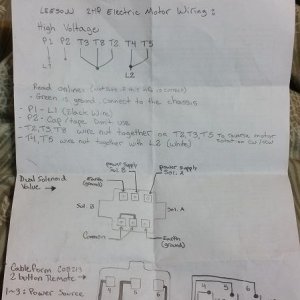 LEESON 2HP Electric Motor Wiring:
High Voltage
P1 P2 T3 T8 T2 T4 T5
L1 L2
Read online: (not sure if this is correct)
- Green is ground. connect to the chassis
- P1 - L1 (Black Wire)
- P2 - Cap/tape Dont use
- T2, T3, T8 wire nut together or T2, T3, T5 To reverse motor
rotation CW/CCW
- T4, T5 wire nut together with L2 (white)
Power Supply
Sol. B
Power Supply
Sol. A
Earth
(ground)
Dual Solenoid
Valve
Sol. B
Sol. A
Common
Earth
(ground)
Cableform
2 button Remote
1-3: Power Source
4
5
6
4